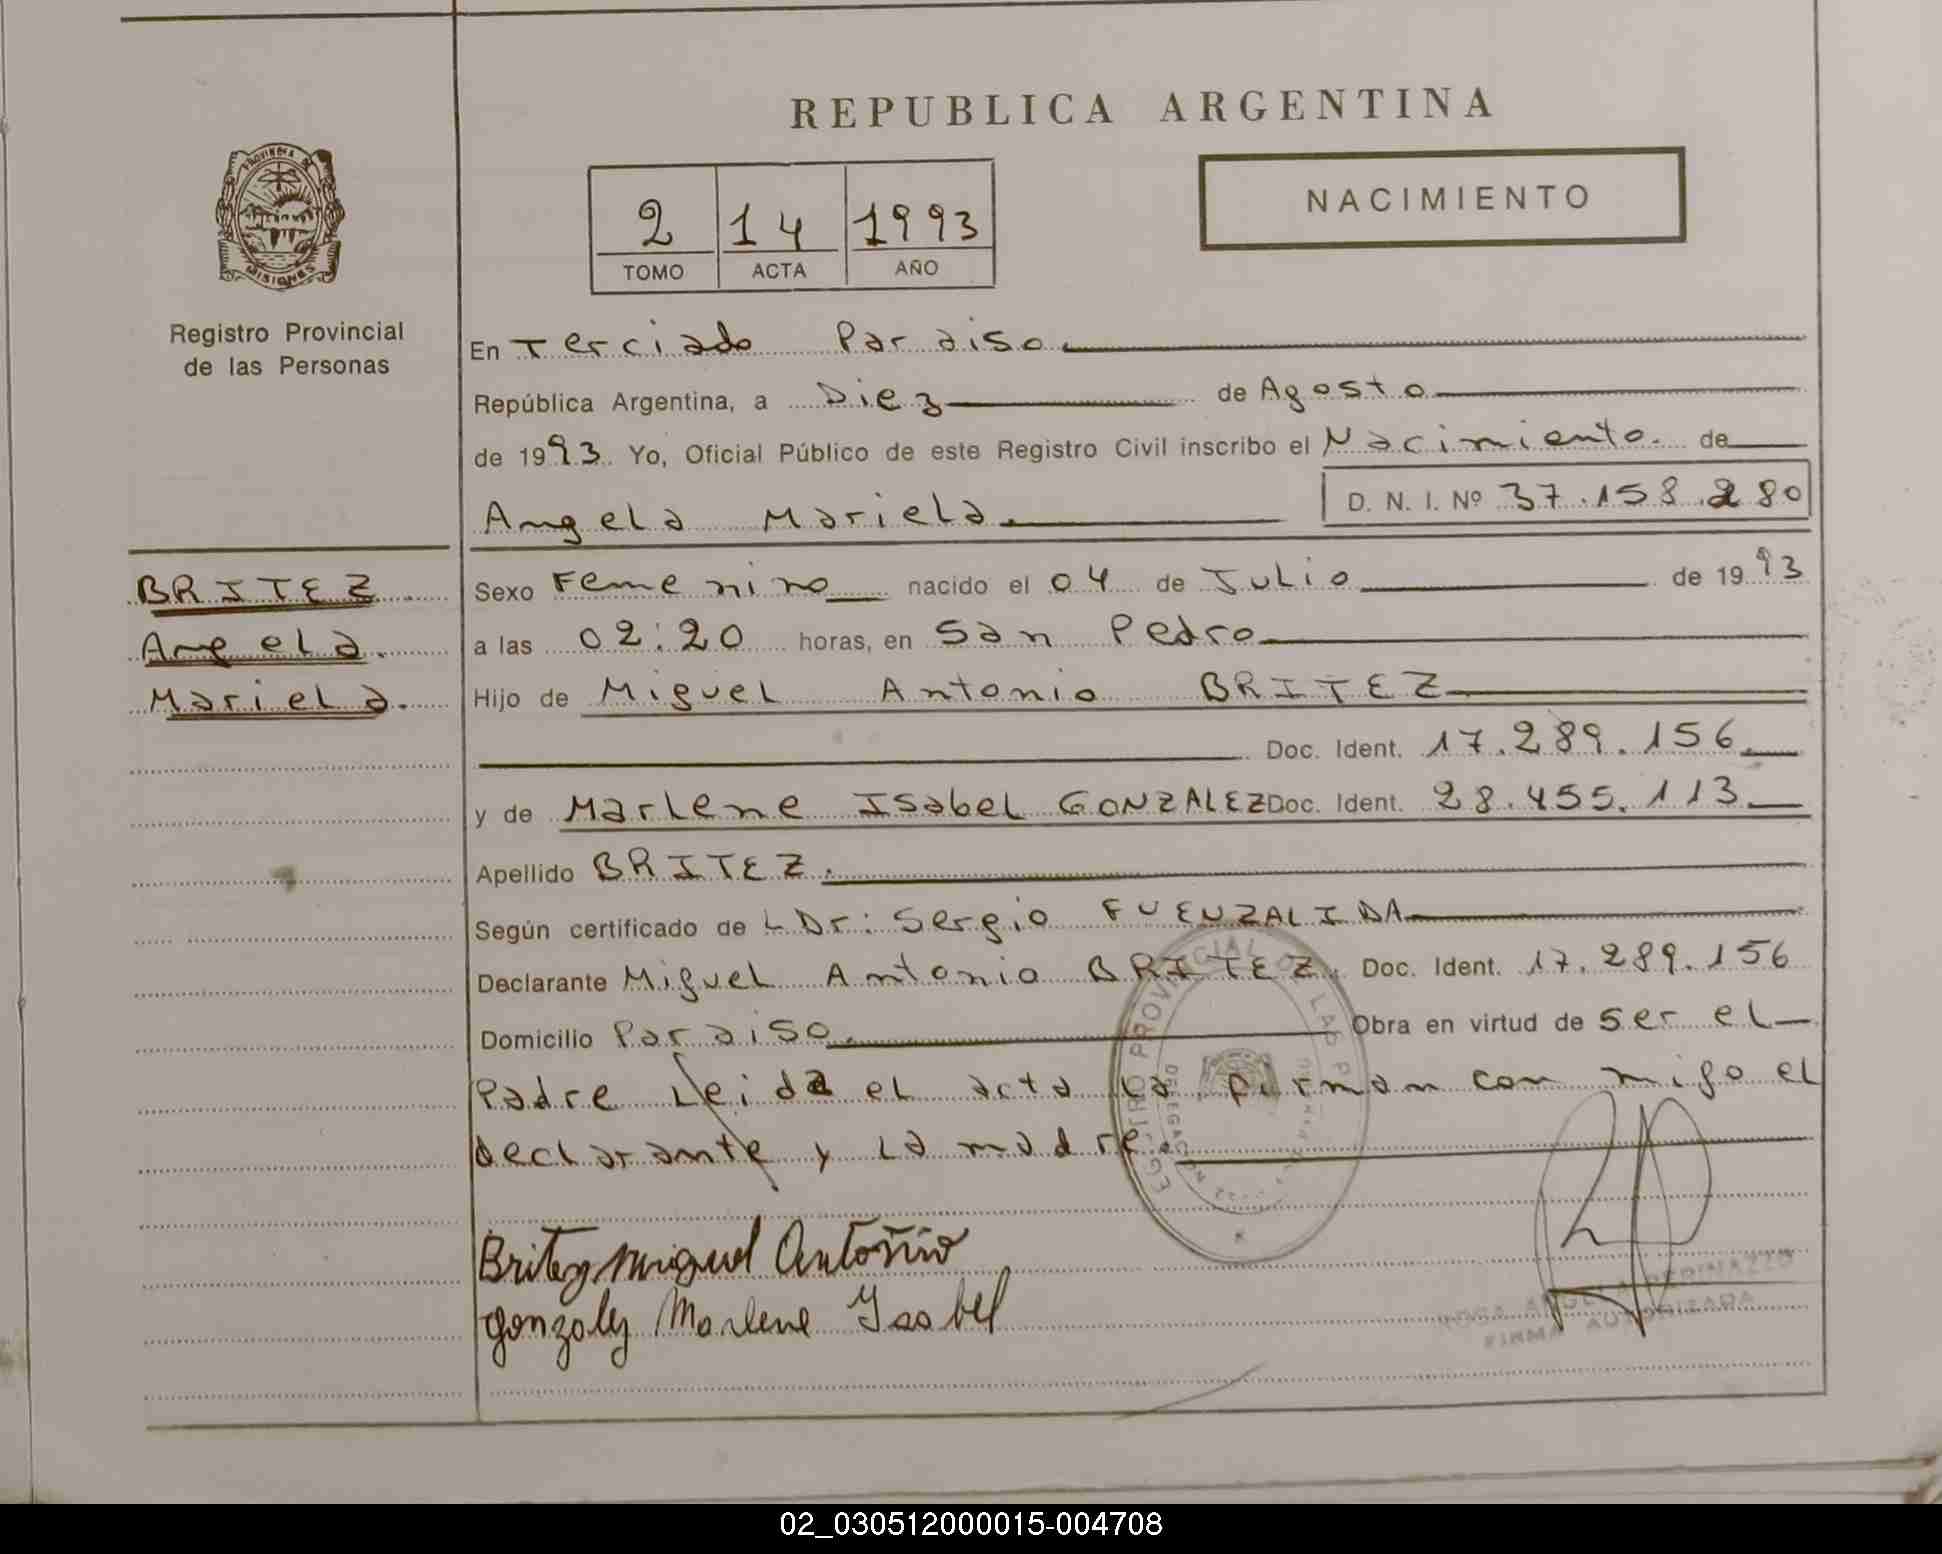 REPUBLICA ARGENTINA
NACIMIENTO
2 14 1993
TOMO ACTA AÑO
PROVINCIA DE
MISIONES
Registro Provincial
de las Personas
En Terciado Paraiso
República Argentina, a Diez de Agosto
de 1993. Yo, Oficial Público de este Registro Civil inscribo el Nacimiento. de
Angela Mariela D. N. I. Nº 37.158.280
BRITEZ
Angela.
Mariela.
Sexo Femenino nacido el 04 de Julio de 1993
a las 02:20 horas, en San Pedro
Hijo de Miguel Antonio BRITEZ
Doc. Ident. 17.289.156
y de Marlene Isabel GONZALEZ Doc. Ident. 28.455.113
Apellido BRITEZ.
Según certificado de L Dr: Sergio FUENZALIDA
Declarante Miguel Antonio BRITEZ. Doc. Ident. 17.289.156
Domicilio Paraiso. Obra en virtud de ser el
Padre Leida el acta la firman con migo el
declarante y la madre.
Britez Miguel Antonio
gonzalez Marlene Ysabel
FIRMA AUTORIZADA
02_030512000015-004708